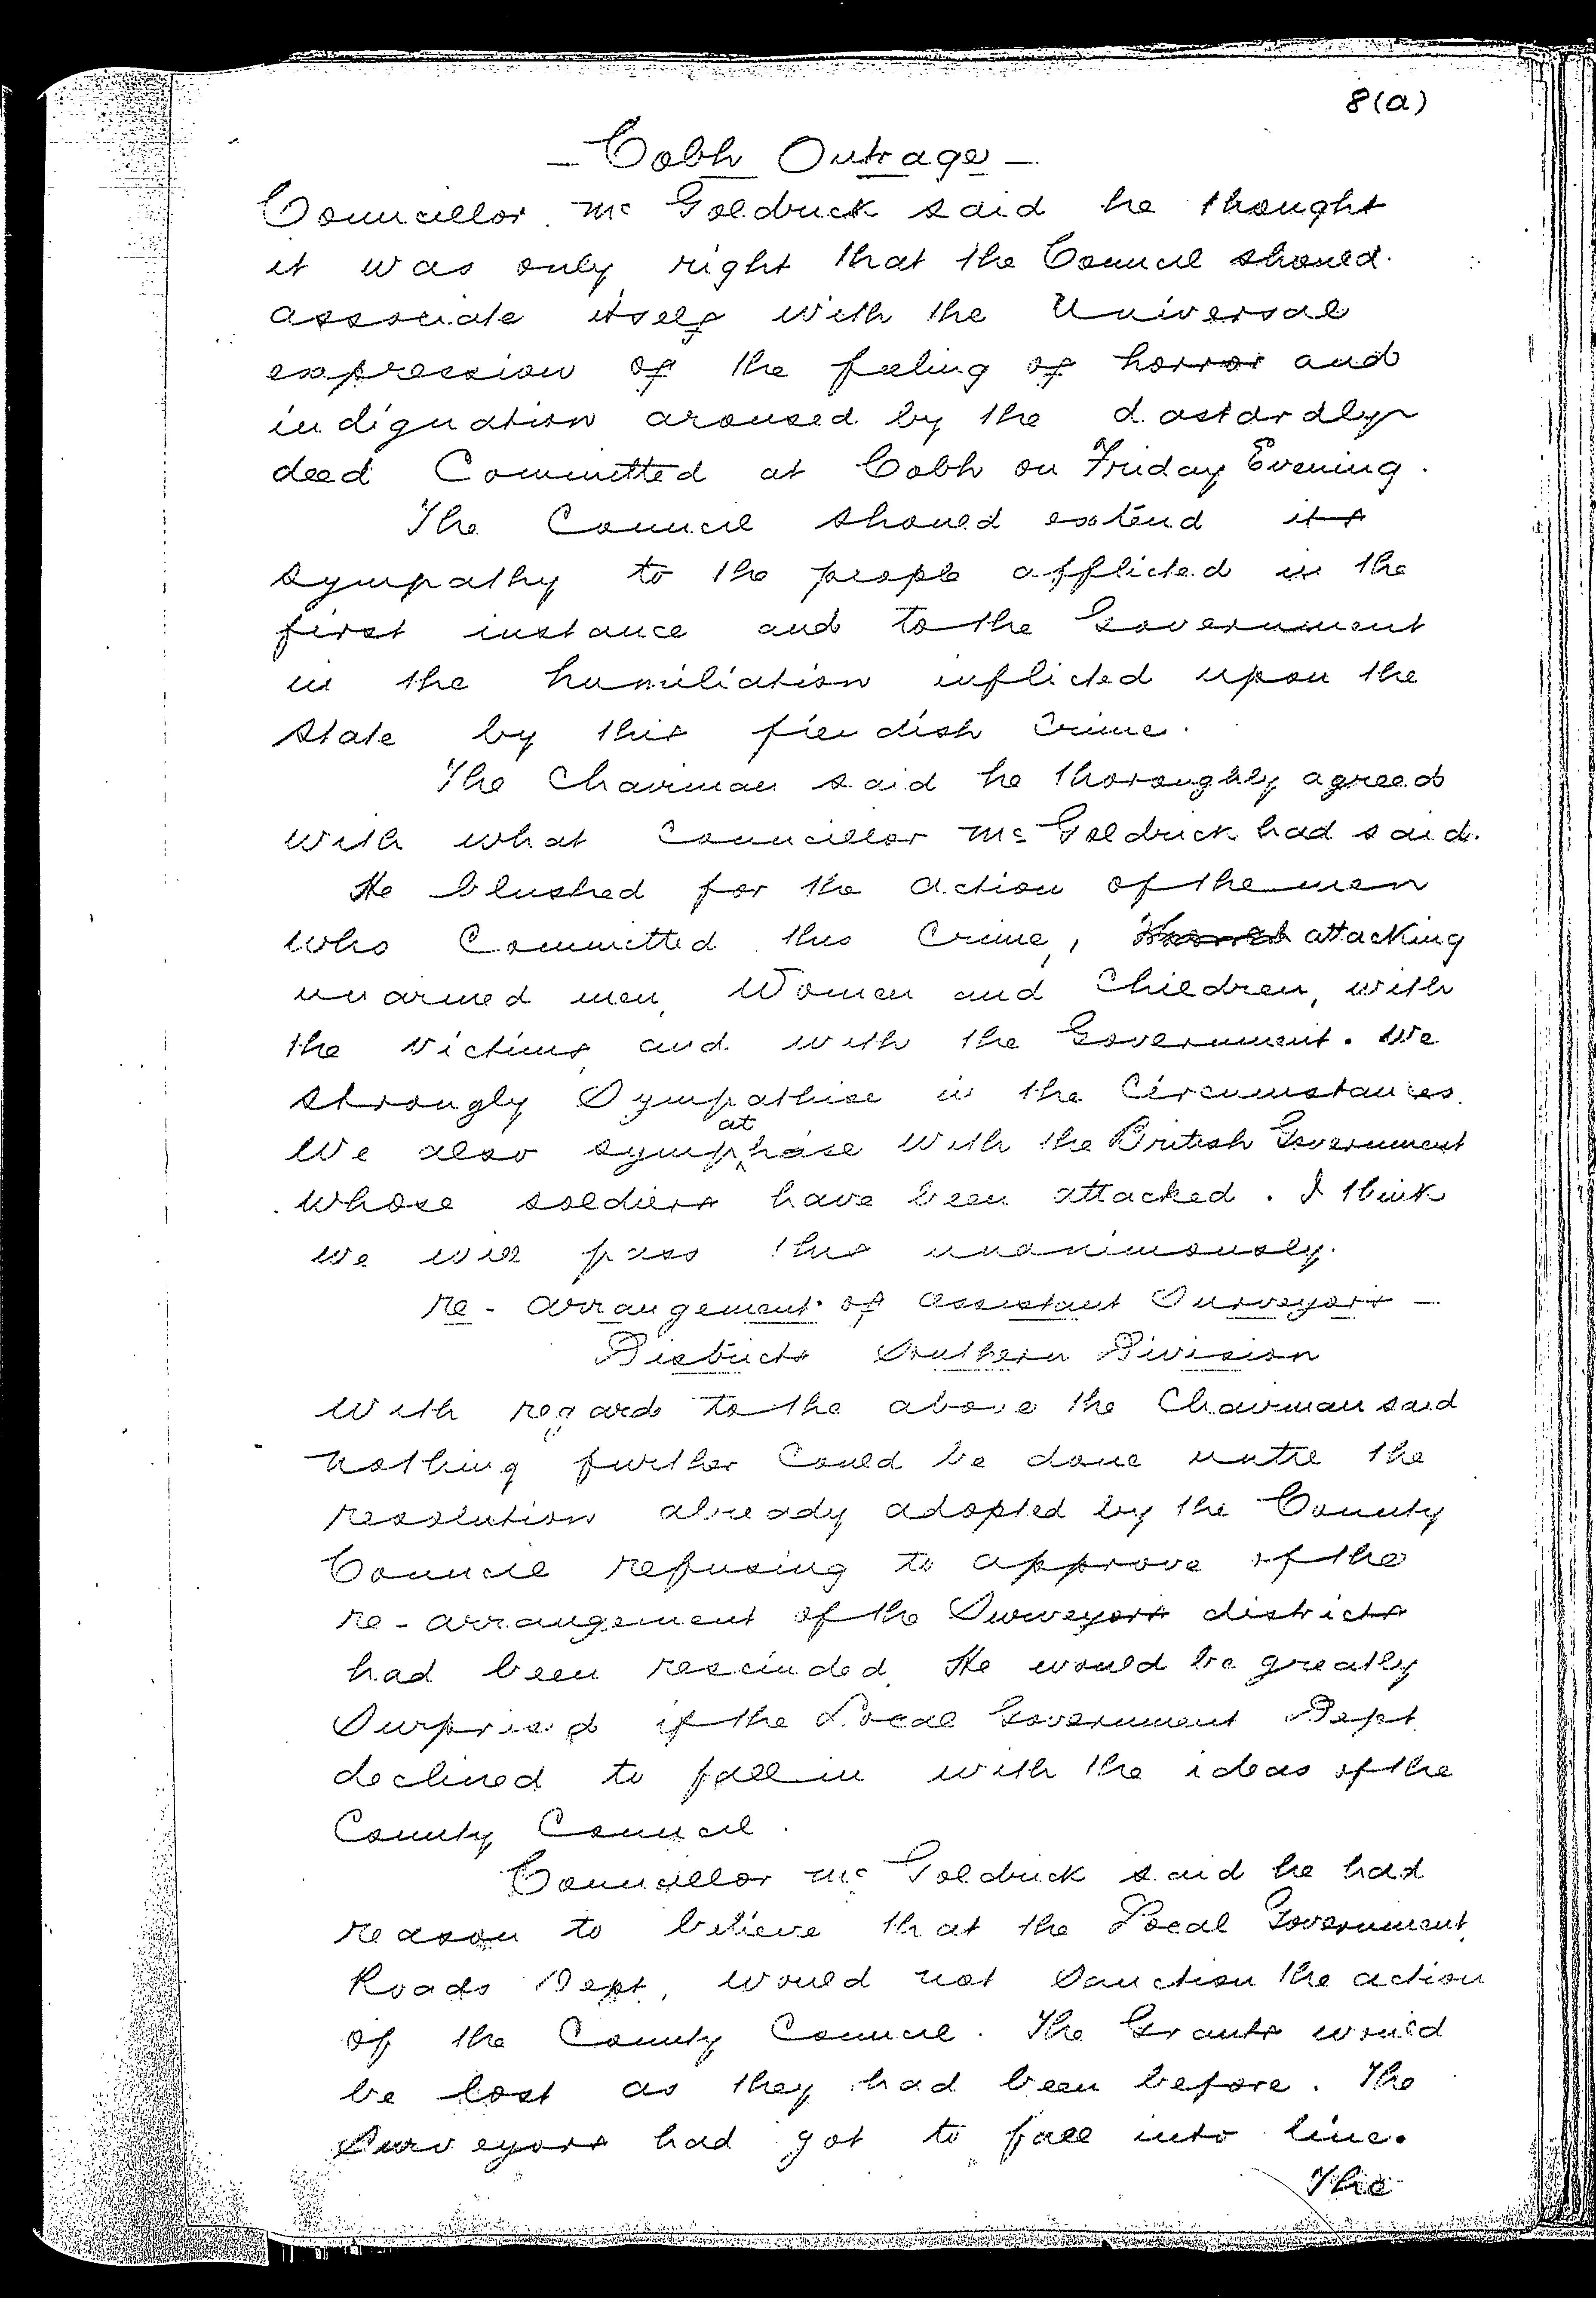 8(a)
- Cobh Outrage -
Councillor Mc Goldrick said he thought
it was only right that the Council should
associate itself with the Universal
expression of the feeling of horror and
indignation aroused by the dastardly
deed Committed at Cobh on Friday Evening.
The Council should extend its
sympathy to the people afflicted in the
first instance and to the Government
in the humiliation inflicted upon the
State by this fiendish Crime.
The Chairman said he thoroughly agreed
with what Councillor Mc Goldrick had said.
He blushed for the action of the men
who Committed this Crime, attacking
unarmed men, Women and Children, with
the victims and with the Government. We
strongly Sympathise in the Circumstances.
We also sympathise with the British Government
whose soldiers have been attacked. I think
we will pass this unanimously.
re-arrangement of Assistant Surveyors -
Districts Southern Division
With regard to the above the Chairman said
nothing further Could be done until the
resolution already adopted by the County
Council refusing to approve of the
re-arrangement of the Surveyors districts
had been rescinded. He would be greatly
Surprised if the Local Government Dept
declined to fall in with the ideas of the
County Council.
Councillor Mc Goldrick said he had
reason to believe that the Local Government
Roads Dept, would not Sanction the action
of the County Council. The Grants would
be lost as they had been before. The
Surveyors had got to fall into line.
The